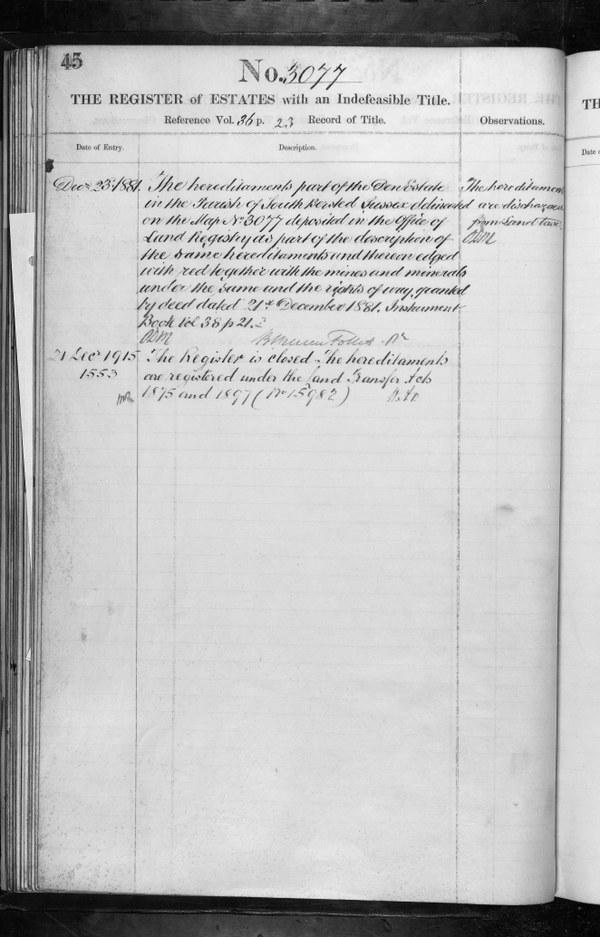 45
No. 3077
THE REGISTER of ESTATES with an Indefeasible Title.
Reference Vol. 36 p. 23 Record of Title.
Observations.
Date of Entry.
Description.
Decr 23rd 1881.
The hereditaments part of the Den Estate
in the Parish of South Bersted Sussex delineated
on the Map No 3077 deposited in the Office of
Land Registry as part of the description of
the same hereditaments and thereon edged
with red together with the mines and minerals
under the same and the rights of way, granted
by deed dated 21st December 1881. Instrument
Book Vol 38 p 21.
The hereditaments
are discharged
from Land tax.
21 Decr 1915
1553
The Register is closed The hereditaments
are registered under the Land Transfer Acts
1875 and 1897 (No 15982)
TH
Date o